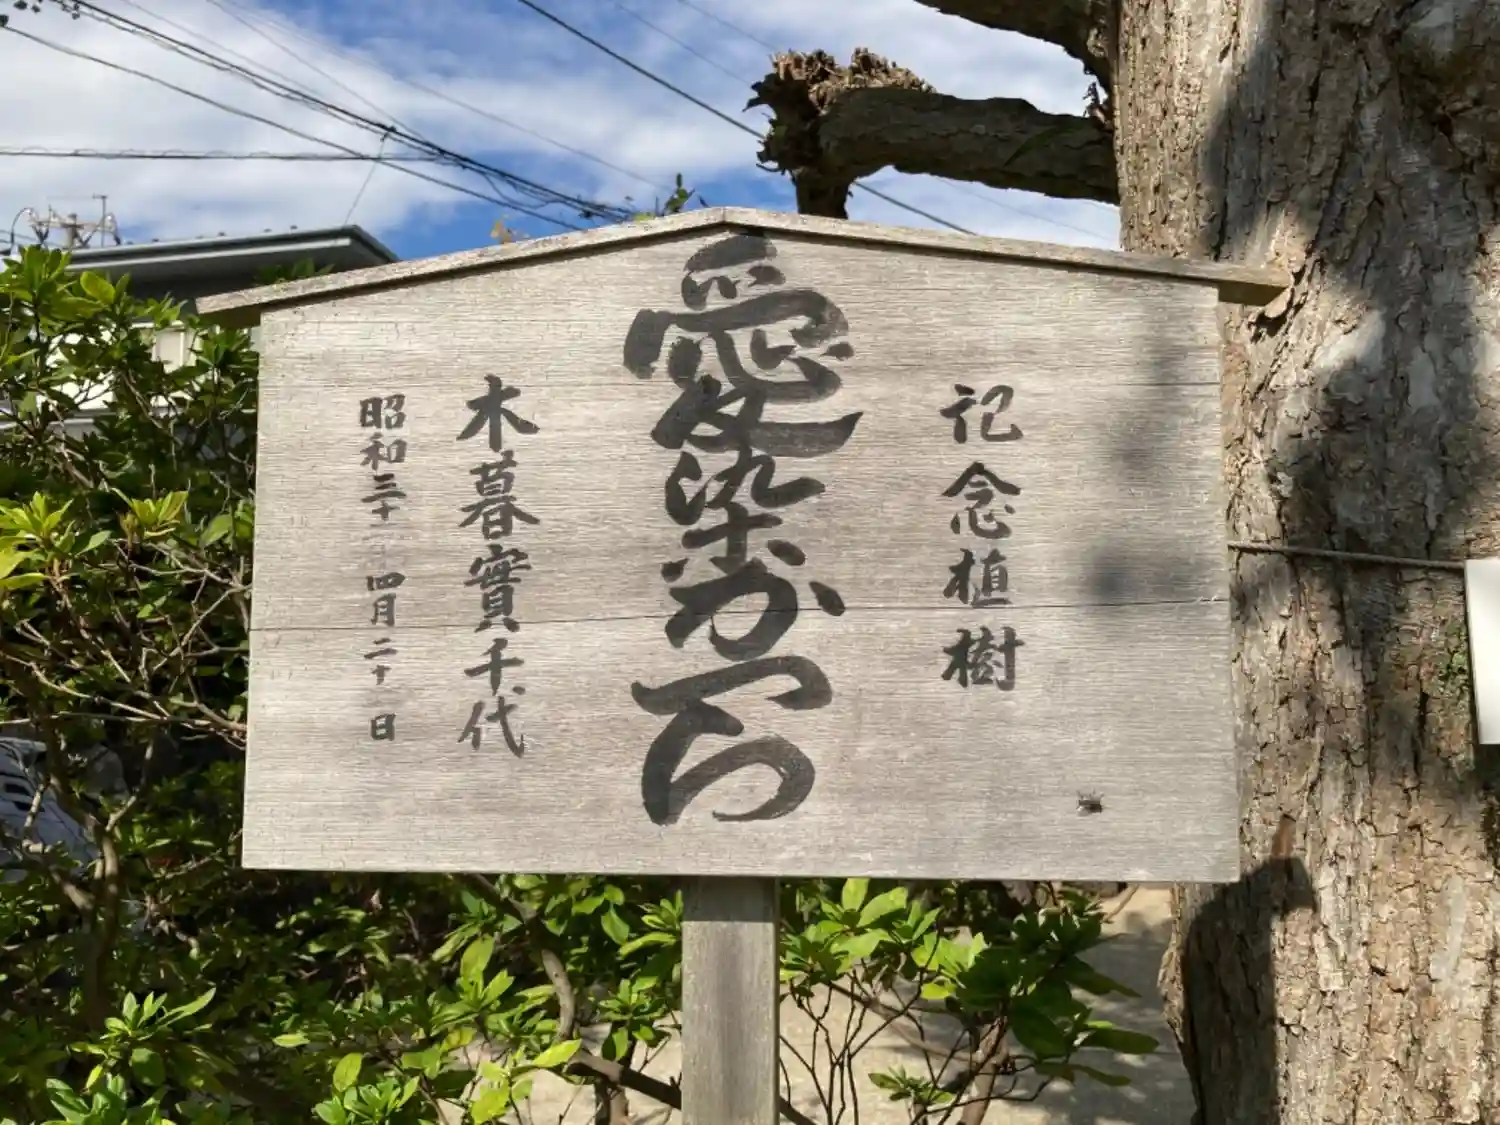 記念植樹
愛染かつら
木暮實千代
昭和三十 年四月二十 日